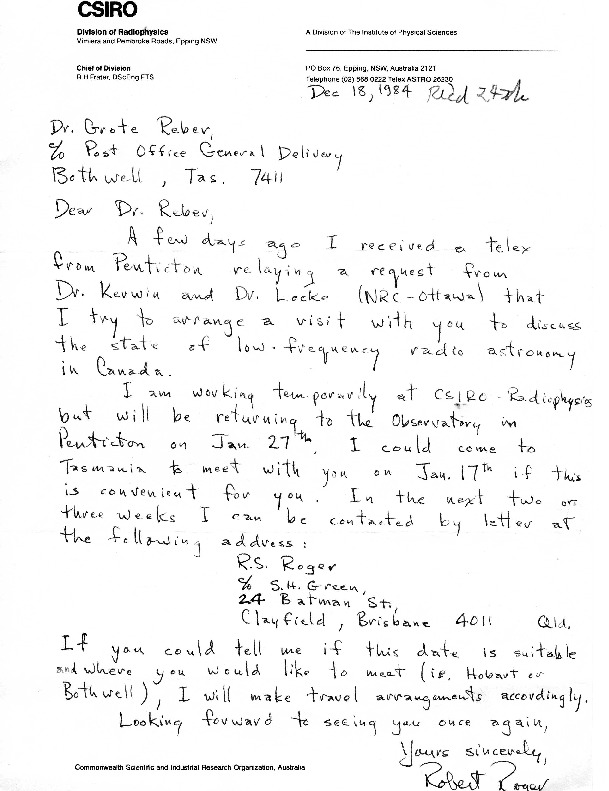 CSIRO
Division of Radiophysics
Vimiera and Pembroke Roads, Epping NSW
A Division of The Institute of Physical Sciences
Chief of Division
R H Frater, DScEng FTS
PO Box 76, Epping, NSW, Australia 2121
Telephone (02) 868 0222 Telex ASTRO 26230
Dec 18, 1984 Rec'd 24th
Dr. Grote Reber,
% Post Office General Delivery
Bothwell, Tas. 7411
Dear Dr. Reber,
A few days ago I received a telex
from Penticton relaying a request from
Dr. Kerwin and Dr. Locke (NRC-Ottawa) that
I try to arrange a visit with you to discuss
the state of low-frequency radio astronomy
in Canada.
I am working temporarily at CSIRO-Radiophysics
but will be returning to the Observatory in
Penticton on Jan. 27th. I could come to
Tasmania to meet with you on Jan. 17th if this
is convenient for you. In the next two or
three weeks I can be contacted by letter at
the following address:
R.S. Roger
% S.H. Green,
24 Batman St.,
Clayfield, Brisbane 4011 Qld.
If you could tell me if this date is suitable
and where you would like to meet (ie. Hobart or
Bothwell), I will make travel arrangements accordingly.
Looking forward to seeing you once again,
Yours sincerely,
Robert Roger
Commonwealth Scientific and Industrial Research Organization, Australia